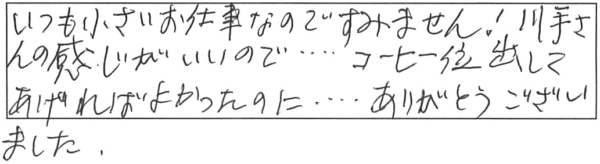 いつも小さいお仕事なのですみません！川手さ
んの感じがいいので‥‥コーヒー位出して
あげればよかったのに‥‥ありがとうござい
ました．